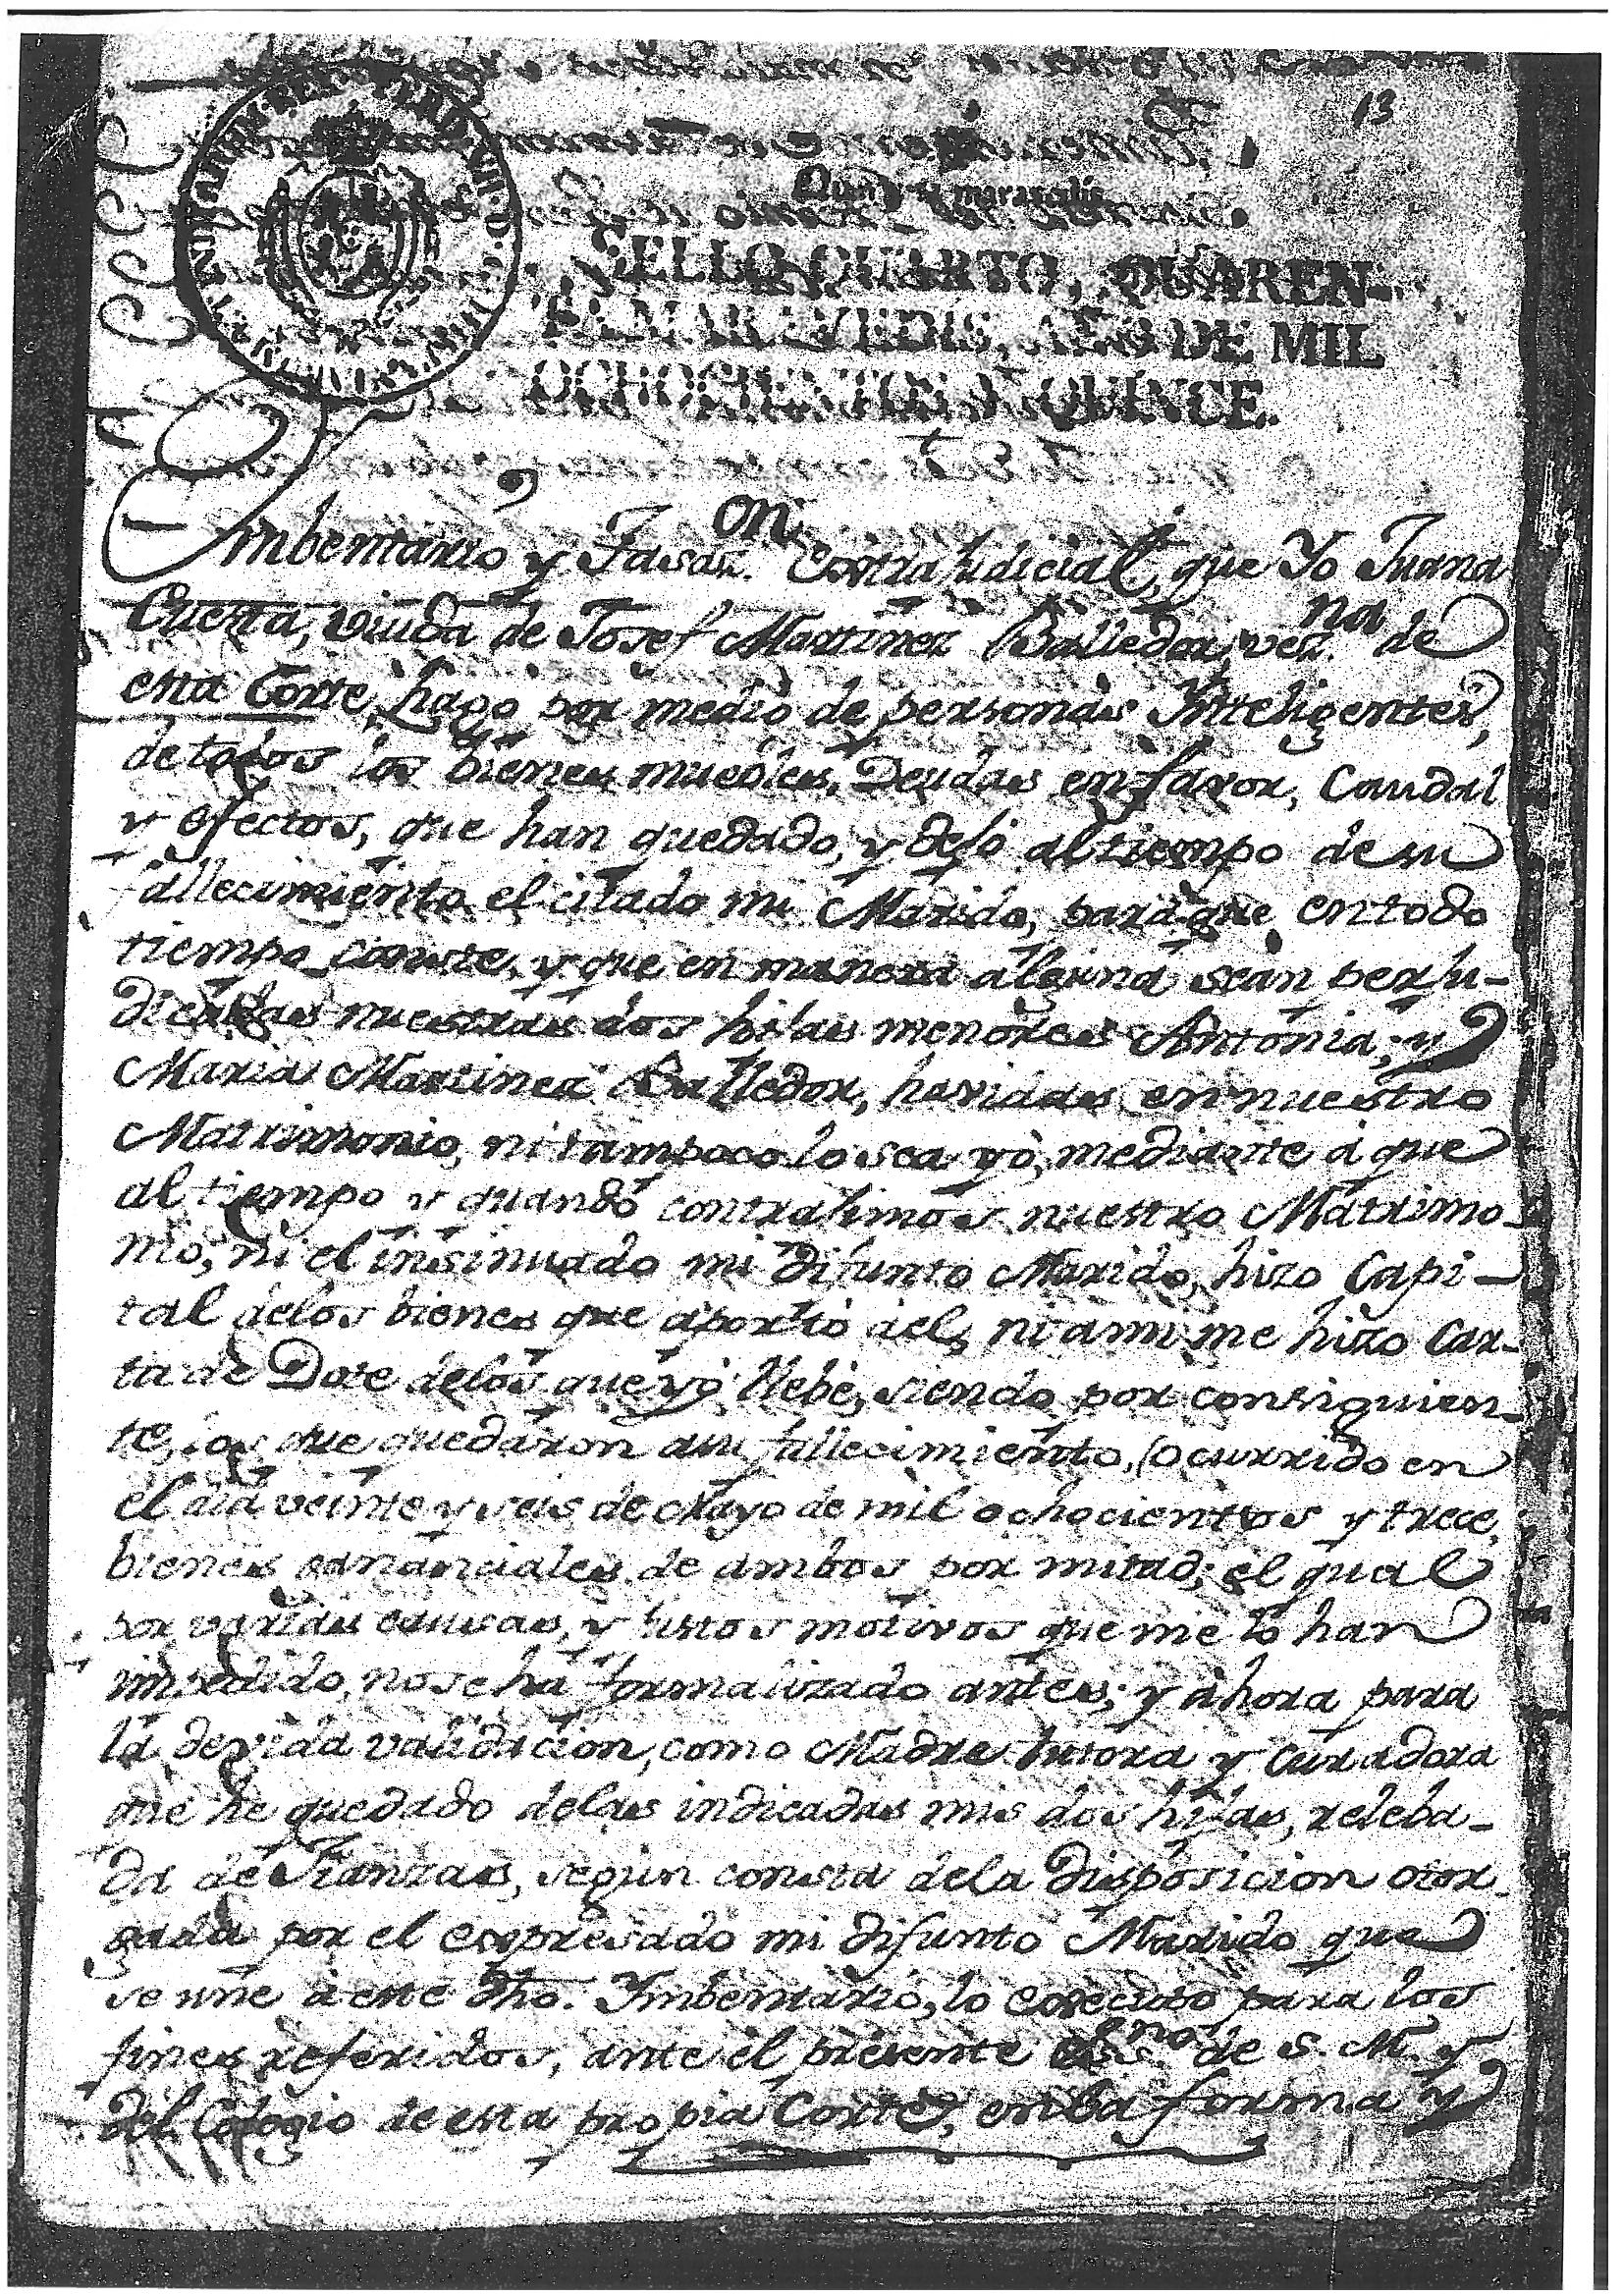 13
Quarenta maravedis.
SELLO QUARTO, QUAREN-
TA MARAVEDIS, AÑO DE MIL
OCHOCIENTOS Y QUINCE.
Ymbentario y Tasaz.on extrajudicial, que Yo Juana
Cuesta, viuda de Josef Martinez Balledor, vez.na de
esta Corte, hago por medio de personas Inteligentes,
de todos los bienes muebles, Deudas en favor, Caudal
y efectos, que han quedado, y dejó al tiempo de su
fallecimiento el citado mi Marido, para que en todo
tiempo conste, y que en manera alguna sean perju-
dicadas nuestras dos hijas menores Antonia, y
Maria Martinez Balledor, havidas en nuestro
Matrimonio, ni tampoco lo sea yo, mediante á que
al tiempo y quando contrahimos nuestro Matrimo-
nio, ni el insinuado mi difunto Marido, hizo Capi-
tal delos bienes que aportó á el, ni ami me hizo Car-
ta de Dote delos que yo llebé, siendo por consiguien-
te, los que quedaron a su fallecimiento, (ocurrido en
el dia veinte y seis de Mayo de mil ochocientos y trece,
bienes gananciales de ambos por mitad; el qual
por varias causas, y justos motivos que me lo han
impedido, no se ha formalizado antes; y ahora para
la devida validacion, como Madre tutora y curadora
que he quedado delas indicadas mis dos hijas, releba-
da de Fianzas, segun consta dela disposicion otor-
gada por el expresado mi difunto Marido que
se une á este dho. Ymbentario, lo executo para los
fines referidos, ante el presente Ess.no de S. M. y
del Colegio de esta propia Corte, en la forma y